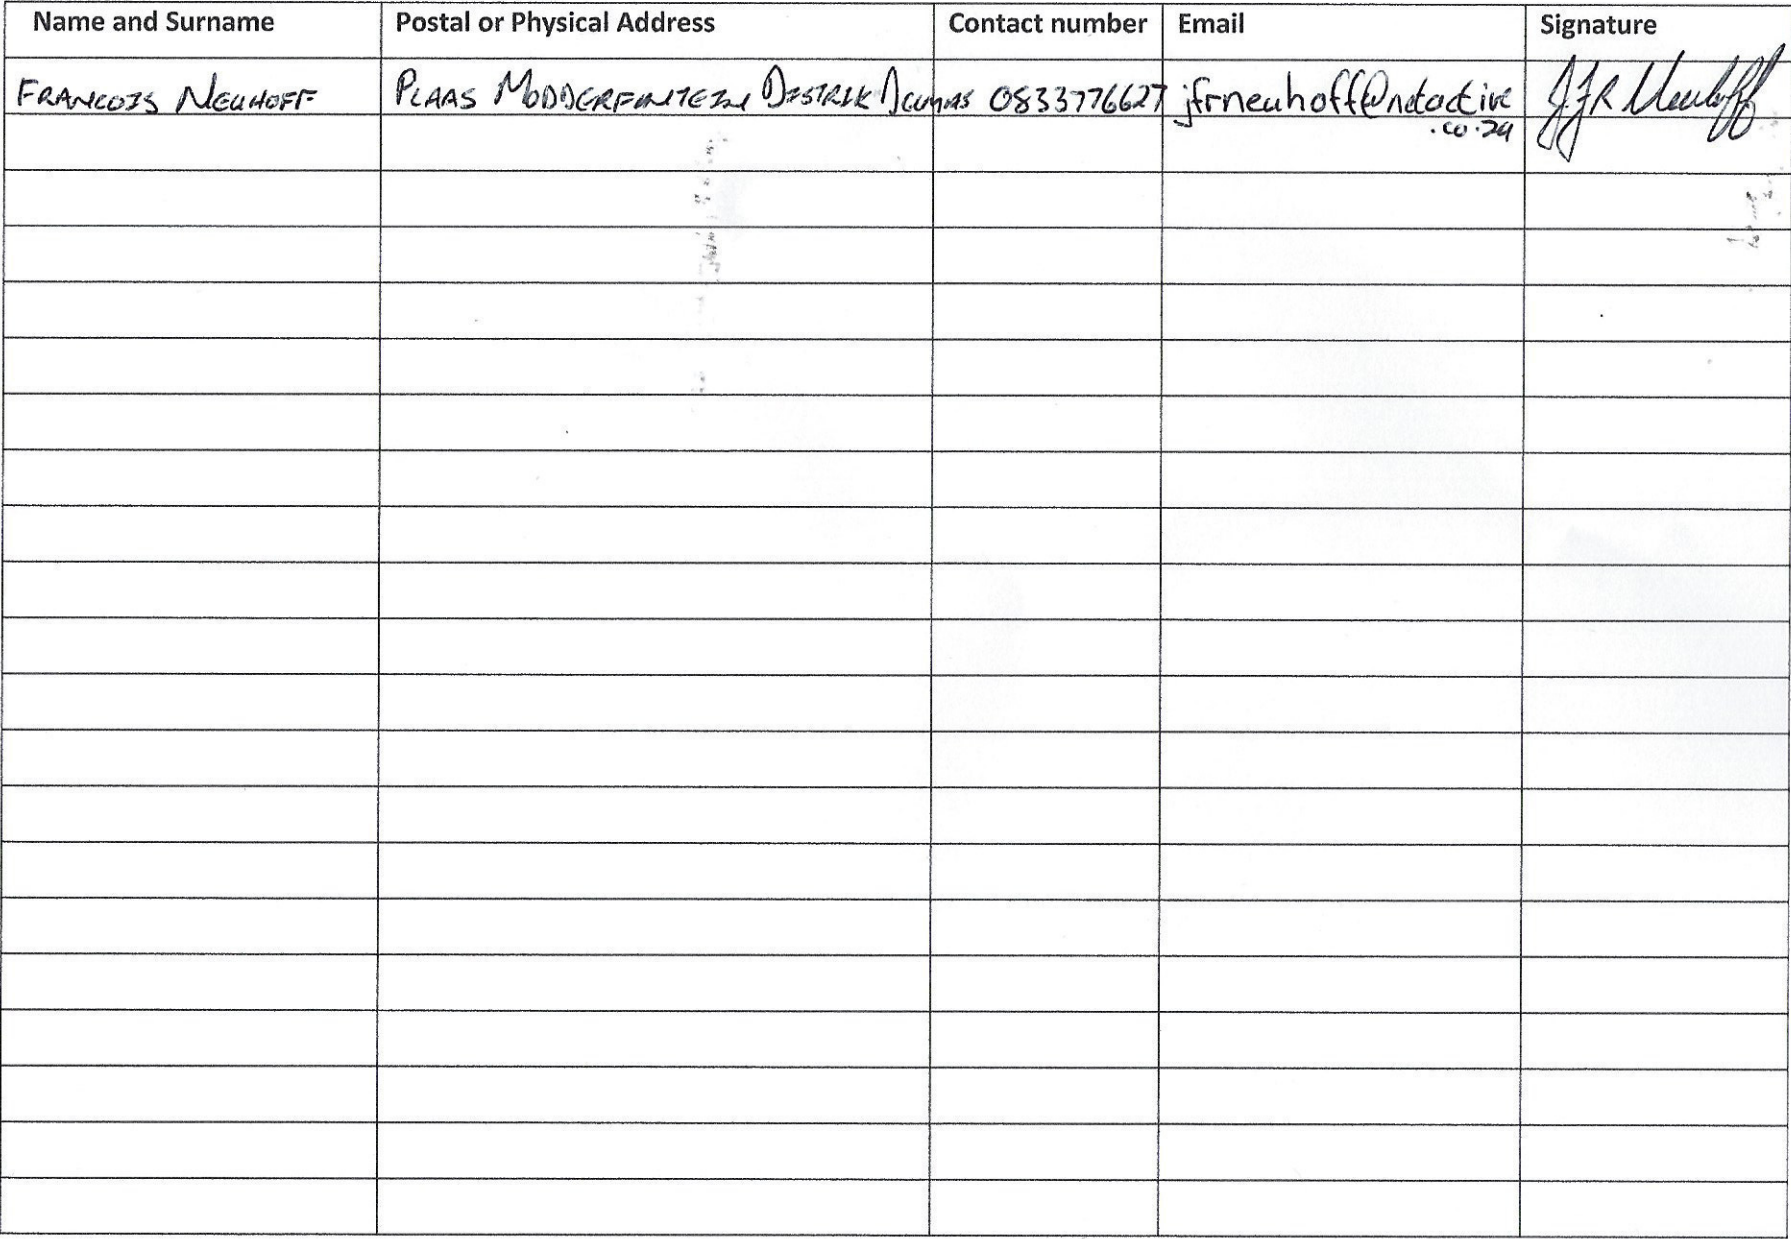 Name and Surname Postal or Physical Address Contact number Email Signature
FRANCOIS NEUHOFF PLAAS MODDERFONTEIN DISTRIK DELMAS 0833776627 jfrneuhoff@netactive J.F.R Neuhoff
.co.za